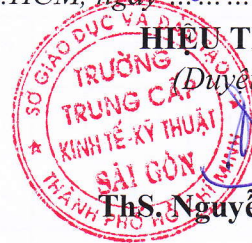 .HCM, ngày
HIỆU T
(Duyệ
SỞ GIÁO DỤC VÀ Đ
TRƯỜNG
TRUNG CẤP
KINH TẾ-KỸ THUẬT
SÀI GÒN
THÀNH PHỐ
ThS. Nguyễ